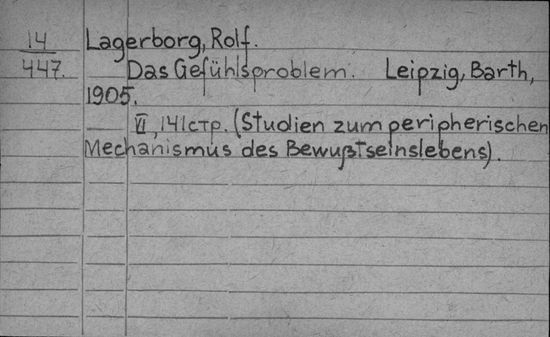 14
447.
Lagerborg, Rolf.
Das Gefühlsproblem. Leipzig, Barth,
1905.
VI, 141 стр. (Studien zum peripherischen
Mechanismus des Bewußtseinslebens).